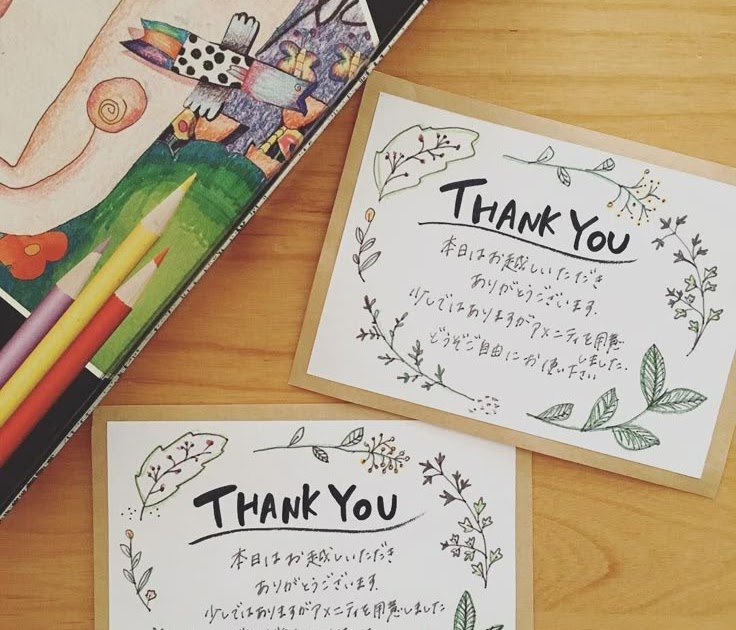 THANK YOU
本日はお越しいただき
ありがとうございます.
少しではありますがアメニティを用意
しました.
どうぞご自由にお使い下さい
THANK YOU
本日はお越しいただき
ありがとうございます.
少しではありますがアメニティを用意しました